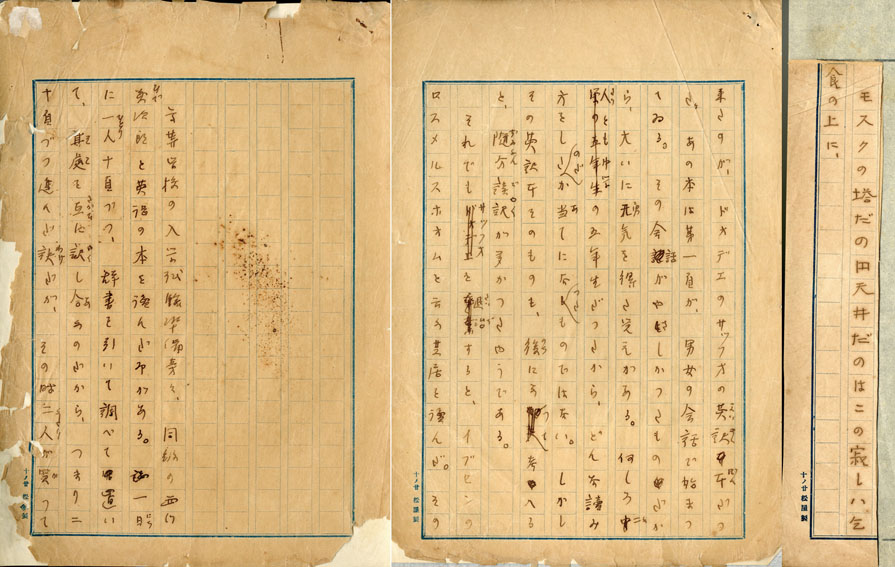 高等学校の入学試験準備旁々、同級の西川
英次郎と英語の本を読んだ事がある。一日
に一人十頁づつ、辞書を引いて調べて置い
て、其處を互に訳し合ふのだから、つまり二
十頁づつ進んだ訣だが、その時二人が買つて
十ノ廿 松屋製
来たのが、ドオデエのサッフオの英訳本だつ
た。あの本は第一頁が、男女の会話で始まつ
てゐる。その会話がやさしかつたものだか
ら、大いに元気を得た覚えがある。何しろ二
人とも中学の五年生だつたから、どんな読み
方をしたのだか当てになつたものではない。しかし
その英訳本そのものも、後になつて考へる
と、随分誤訳が多かつたやうである。
それでもサッフオを退治すると、イブセンの
ロスメルスホオムと云ふ芝居を読んだ。その
十ノ廿 松屋製
モスクの塔だの円天井だのはこの寂しい乞
食の上に、
十ノ廿 松屋製